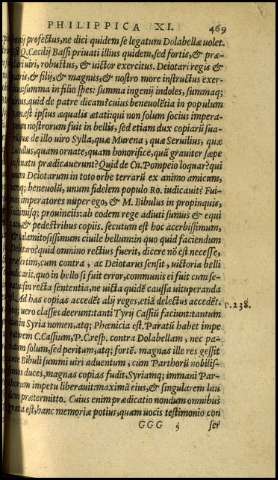 PHILIPPICA XI. 469
profectus, ne dici quidem se legatum Dolabellæ uolet.
Q. Cæcilij Bassi priuati illius quidem, sed fortis, & præ-
uiri, robustus, & uictor exercitus. Deiotari regis &
, & filij, & magnus, & nostro more instructus exer-
summa in filio spes: summa ingenij indoles, summaq;
quid de patre dicam? cuius beneuolētia in populum
est ipsius æqualis ætati: qui non solum socius impera-
nostrorum fuit in bellis, sed etiam dux copiarū sua-
de illo uiro Sylla, quæ Murena, quæ Seruilius, quæ
quàm ornate, quam honorifice, quā grauiter sæpe
prædicauerūt? Quid de Cn. Pompeio loquar? qui
Deiotarum in toto orbe terrarū ex animo amicum,
beneuolū, unum fidelem populo Ro. iudicauit? Fui-
imperatores nuper ego, & M. Bibulus in propinquis,
prouincijs: ab eodem rege adiuti sumus & equi
& pedestribus copijs. secutum est hoc acerbissimum,
calamitosissimum ciuile bellum: in quo quid faciendum
quid omnino rectius fuerit, dicere nō est necesse,
cum contra, ac Deiotarus sensit, uictoria belli
quo in bello si fuit error, communis ei fuit cum se-
sin recta sententia, ne uicta quidē causa uituperanda
Ad has copias accedēt alij reges, etiā delectus accedēt.
uero classes deerunt: tanti Tyrij Cassiū faciunt: tantum
in Syria nomen, atq; Phœnicia est. Paratū habet impe
C. Cassium, P. C. resp. contra Dolabellam, nec pa-
solum, sed peritum, atq; fortē. magnas ille res gessit
Bibuli summi uiri aduentum, cum Parthorū nobilis-
duces, magnas copias fudit, Syriamq; immani Par-
impetu liberauit: maximā eius, & singularem lau
prætermitto. Cuius enim prædicatio nondum omnibus
est, hanc memoriæ potius, quam uocis testimonio con
p. 238.
GGG 5 ser